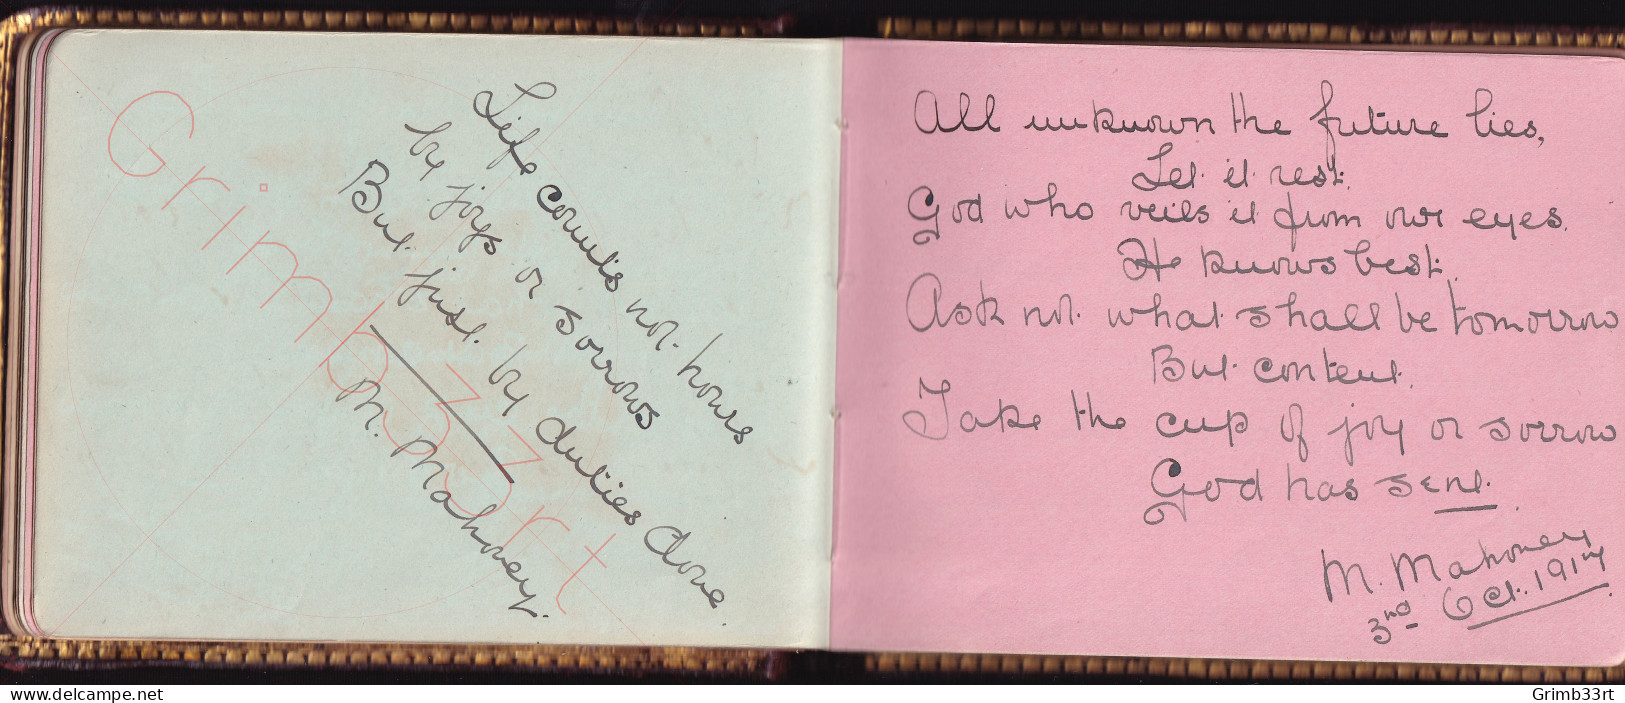 Life counts not hours
by joys or sorrows
But just by duties done.
M. Mahoney.
All unknown the future lies,
Let it rest.
God who veils it from our eyes.
He knows best.
Ask not what shall be tomorrow
But content.
Take the cup of joy or sorrow
God has sent.
M. Mahoney
3rd Oct. 1914
Grimb33rt
www.delcampe.net
Grimb33rt